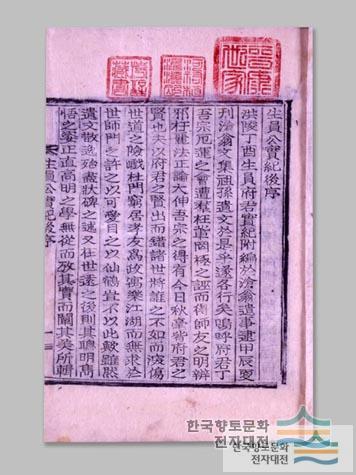 生員公實紀後序
洪陵丁酉生員府君實紀附編於滄翁遺事逮甲辰更
刊滄翁文集祖孫遺文於是乎遂各行矣嗚呼府君丁
吾宗厄運之會遭枉罔極之誣而得師友之明辨
邪枉法正論大伸吾宗之得有今日秋毫皆府君之
賢也夫以府君之賢出而錯諸世將誰之不如而哀傷
世道之杜門窮居孝友爲政寓樂江湖而無求於
世師門之許之以可愛目之以仙鶴豈不以此歟雖然
遺文散逸殆盡狀碑之述又在世遠之後則其聰明雋
悟之姿正直高明之學無從而攷其實而闡其美所輯
生員公實紀後序
一
한국향토문화
전자대전
한국향토문화
전자대전